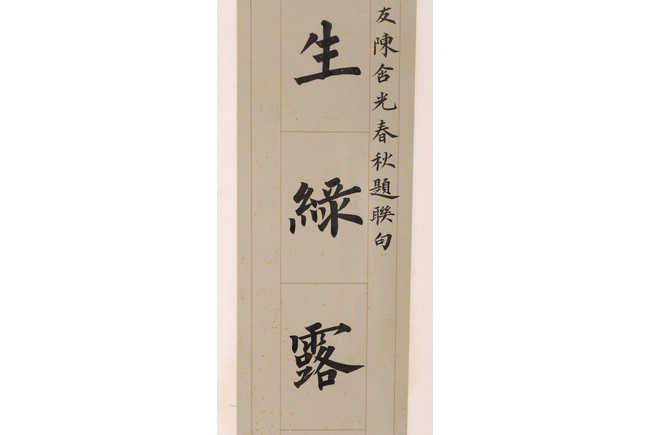 友陳含光春秋題聯句
生綠露